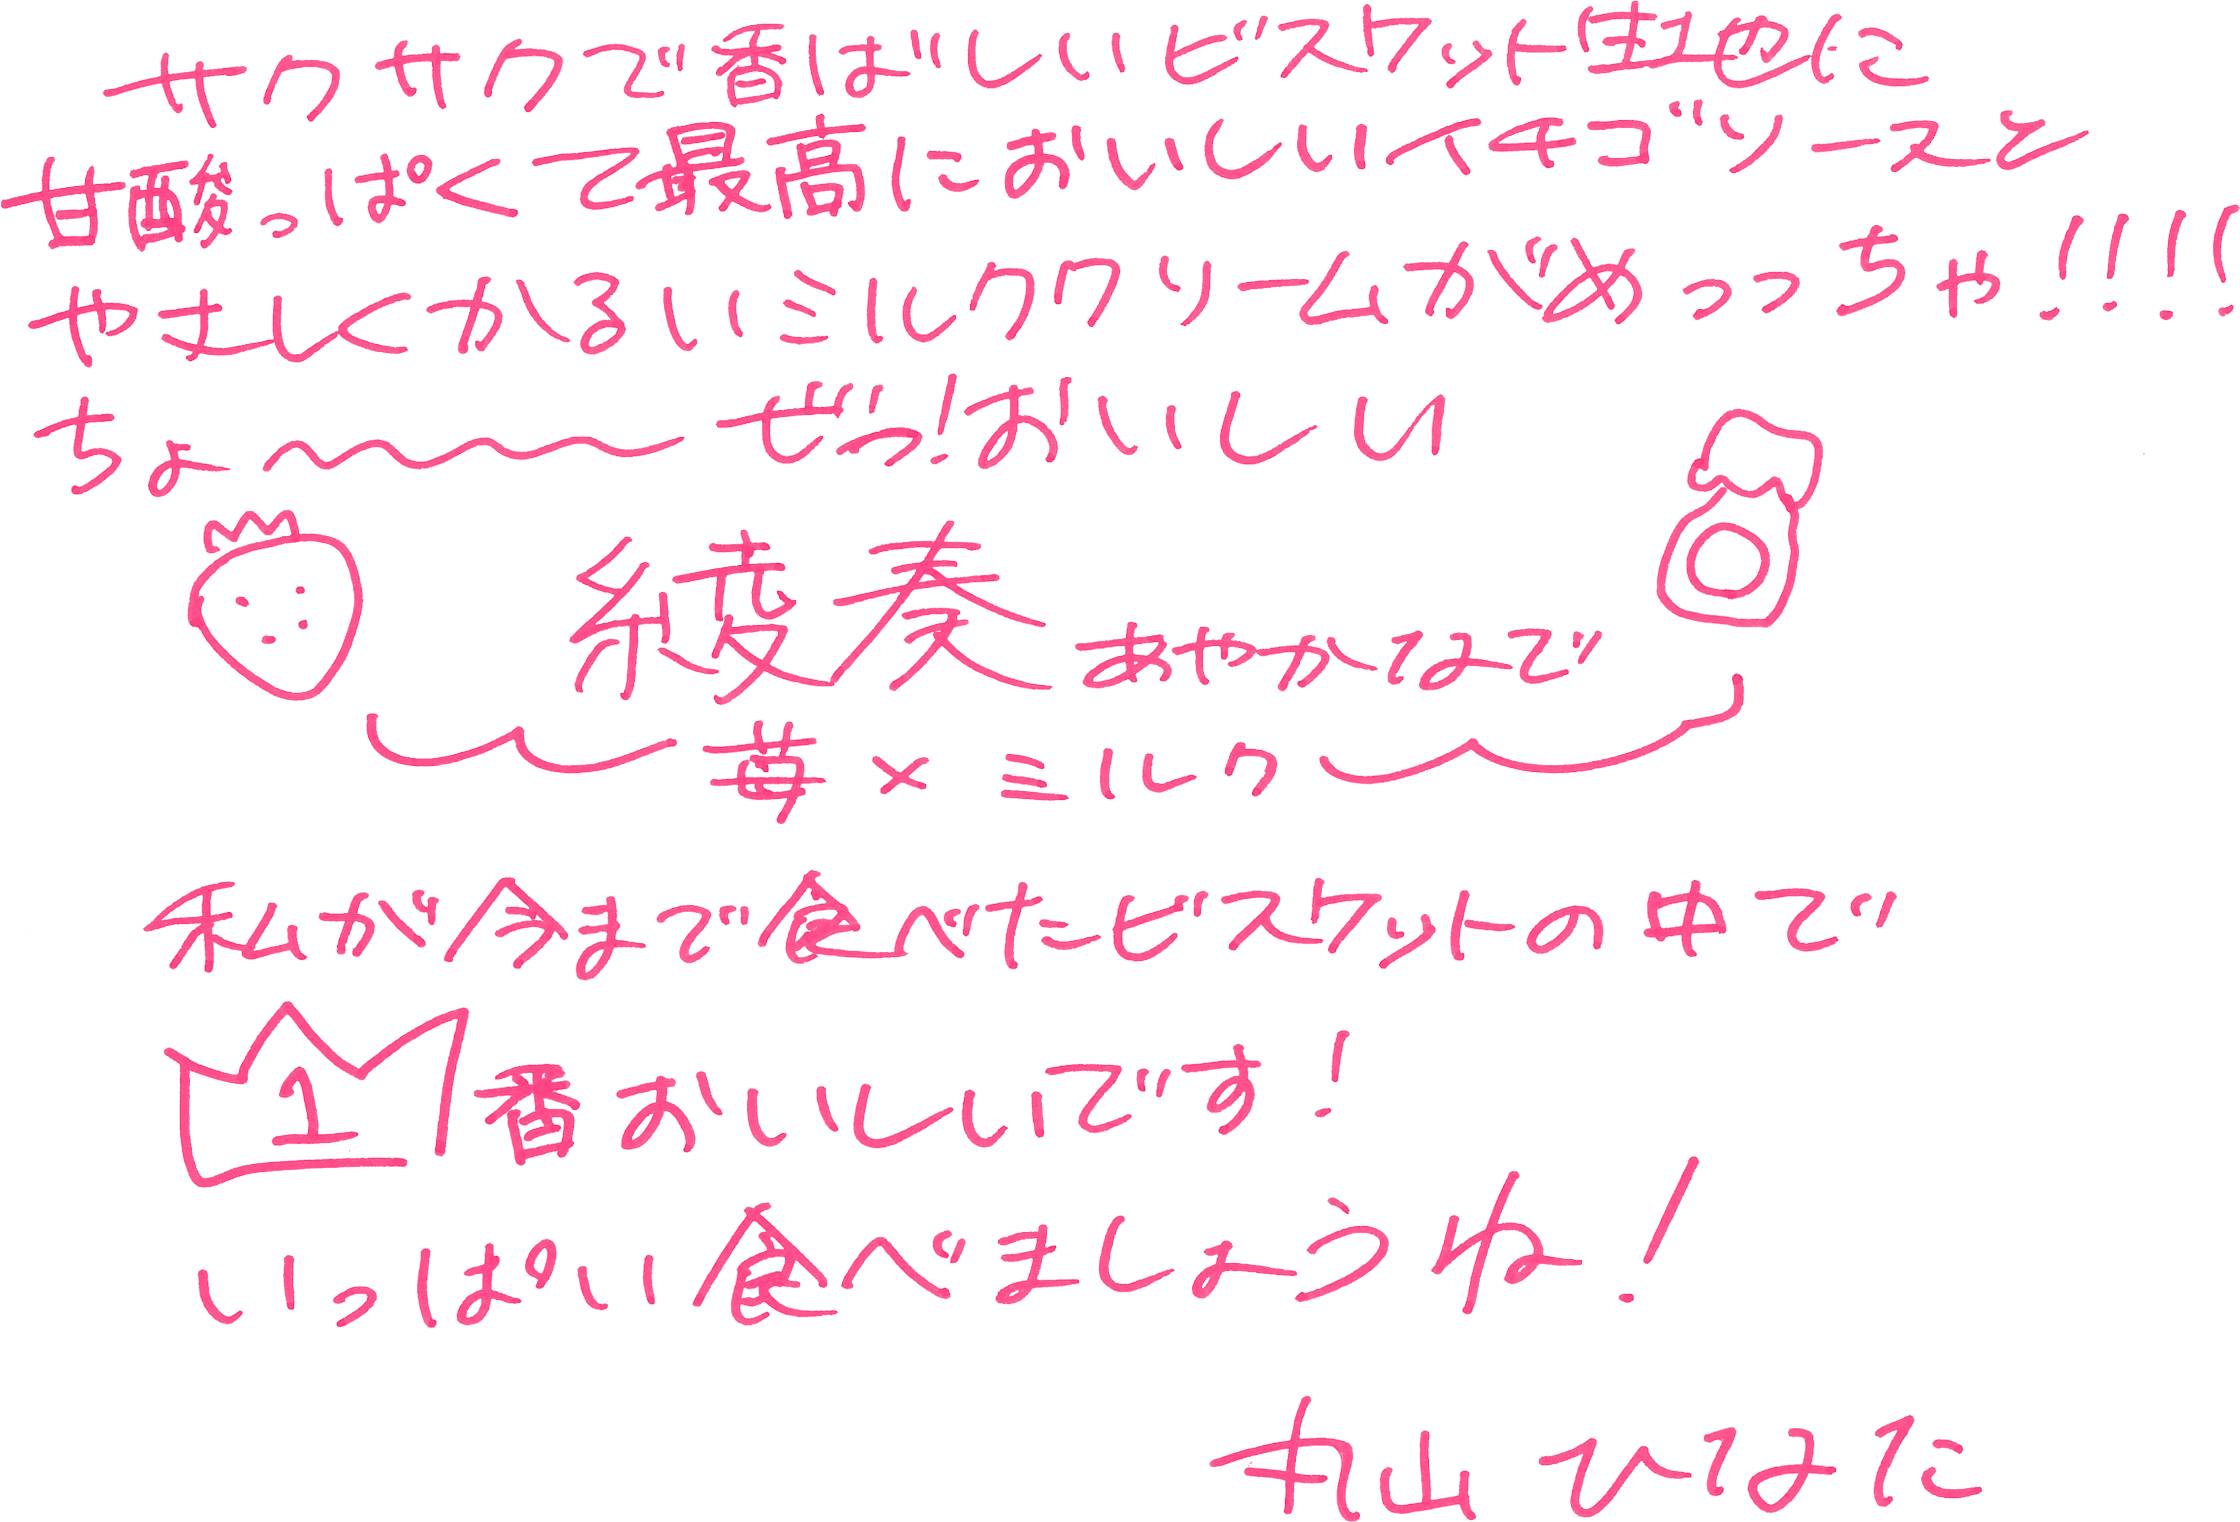 サクサクで番ばしいビスケット生地に
甘酸っぱくて最高においしいイチゴソースと
やさしくかるいミルククリームがめっっちゃ!!!!
ちょ〜〜〜ぜっ!おいしい
綾奏 あやかはで
苺×ミルク
私が今まで食べたビスケットの中で
1番おいしいです!
いっぱい食べましょうね!
丸山 ひなた